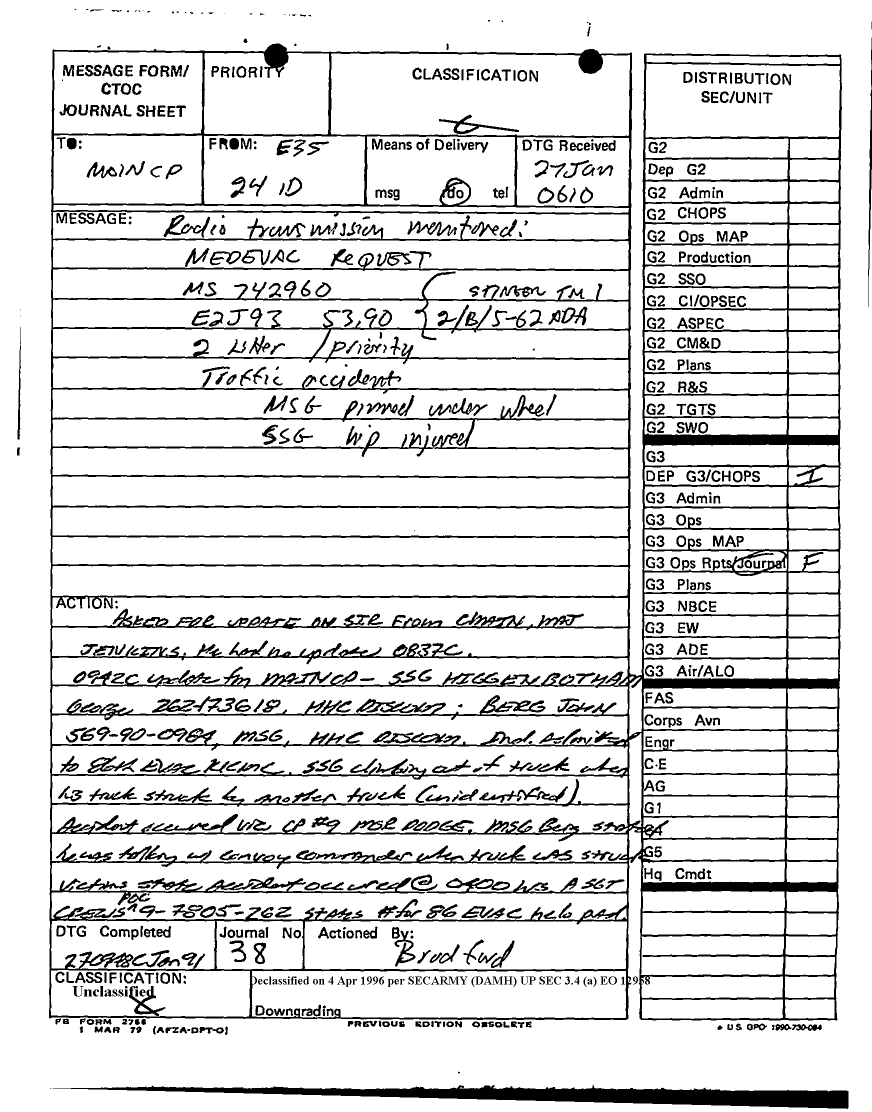 MESSAGE FORM/
CTOC
JOURNAL SHEET
PRIORITY
CLASSIFICATION
DISTRIBUTION
SEC/UNIT
TO:
MAIN CP
FROM: E35
24 ID
Means of Delivery
msg do tel
DTG Received
27 Jan
0610
MESSAGE: Radio transmission monitored:
MEDEVAC REQUEST
MS 742960 STINGER TM 1
E2J93 53.90 2/B/5-62 ADA
2 Litter / priority
Traffic accident
MSG pinned under wheel
SSG hip injured
ACTION:
ASKED FOR UPDATE ON SIR From CMAIN, MAJ
JENKINS; He had no update 0837C.
0942C update fm MAIN CP - SSG HIGGENBOTHAM
George 262173618, HHC DISCOM; BERG JOHN
569-90-0984, MSG, HHC DISCOM. Ind. Admitted
to 86th EVAC KKMC. SSG climbing out of truck when
his truck struck by another truck (unidentified).
Accident occured vic CP #9 MSR DODGE. MSG Berg stated
he was talking w/ convoy commander when truck was struck
Victims state accident occured @ 0400 hrs. A SGT
POC
9-7805-262 states # for 86 EVAC help pad
DTG Completed
270948C Jan 91
Journal No
38
Actioned By:
Bradford
CLASSIFICATION:
Unclassified
Declassified on 4 Apr 1996 per SECARMY (DAMH) UP SEC 3.4 (a) EO 12958
Downgrading
FB FORM 2766
1 MAR 79 (AFZA-DPT-O)
PREVIOUS EDITION OBSOLETE
G2
Dep G2
G2 Admin
G2 CHOPS
G2 Ops MAP
G2 Production
G2 SSO
G2 CI/OPSEC
G2 ASPEC
G2 CM&D
G2 Plans
G2 R&S
G2 TGTS
G2 SWO
G3
DEP G3/CHOPS I
G3 Admin
G3 Ops
G3 Ops MAP
G3 Ops Rpts/Journal F
G3 Plans
G3 NBCE
G3 EW
G3 ADE
G3 Air/ALO
FAS
Corps Avn
Engr
C-E
AG
G1
G4
G5
Hq Cmdt
* U.S. GPO: 1990-730-084